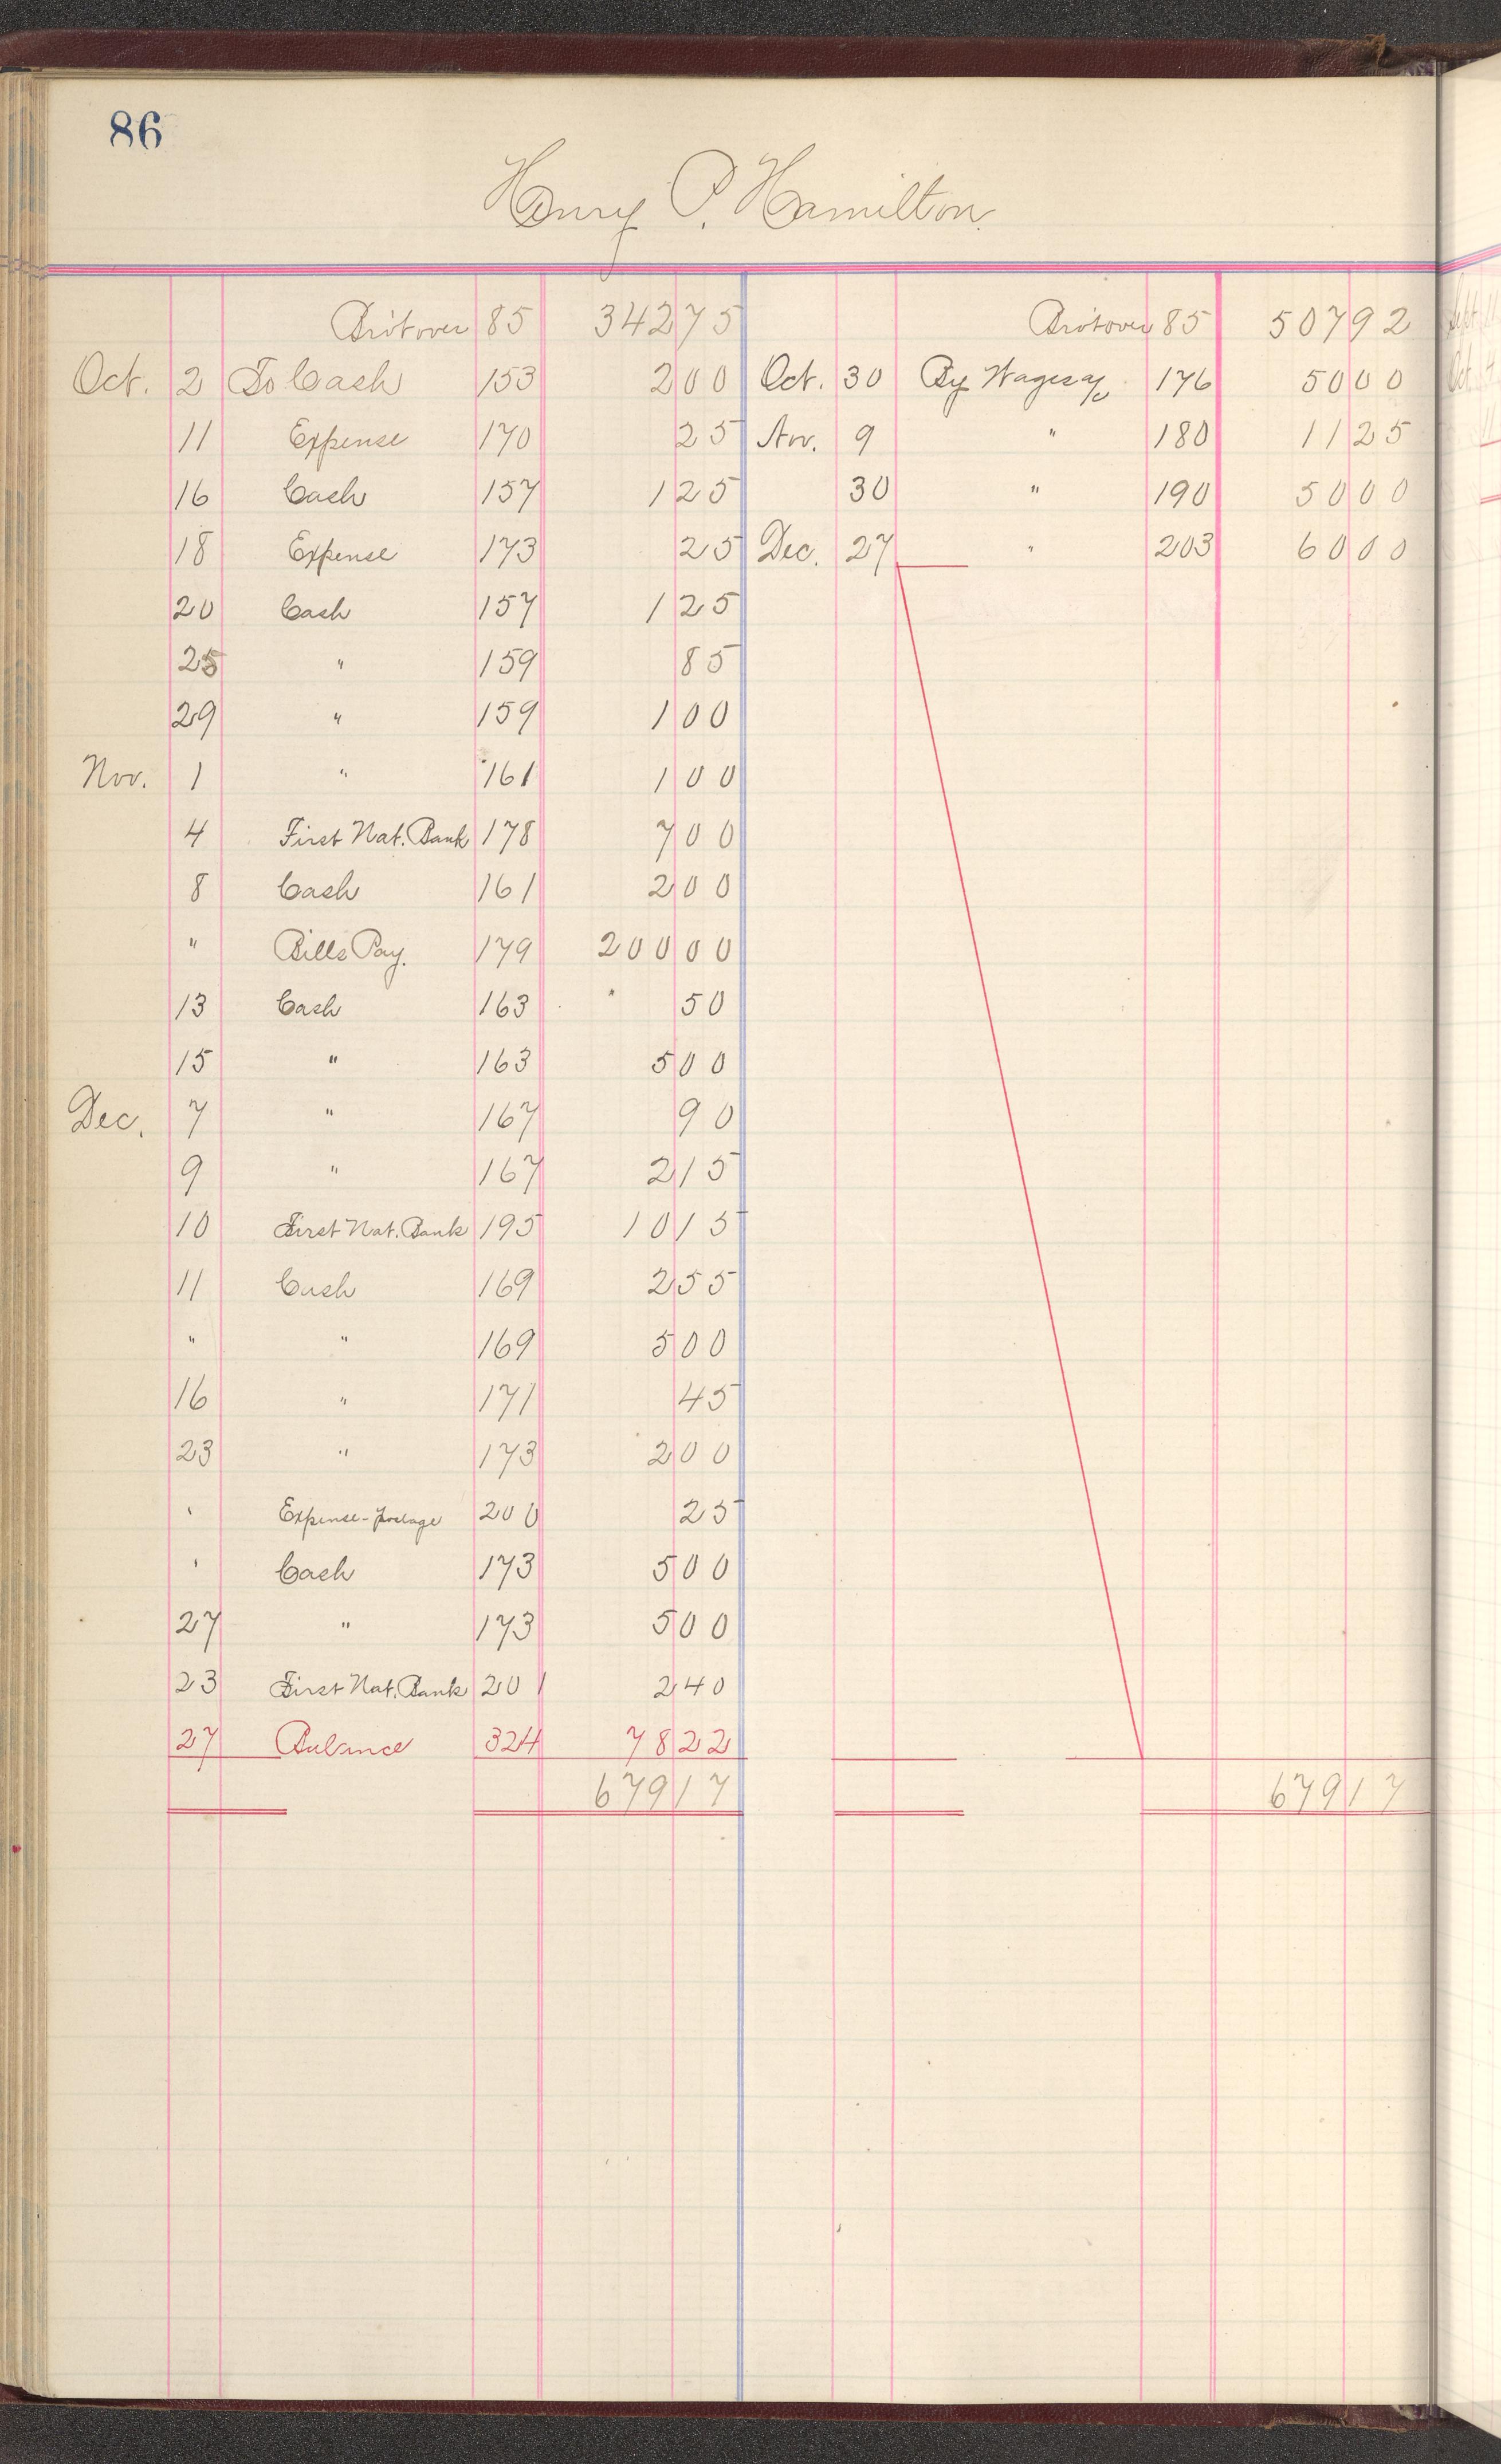 86
Henry P. Hamilton.
Bro't over 85 342 75 Bro't over 85 507 92
Oct. 2 To Cash 153 2 00 Oct. 30 By Wages a/c 176 50 00
11 Expense 170 25 Nov. 9 " 180 11 25
16 Cash 157 1 25 30 " 190 50 00
18 Expense 173 25 Dec. 27 " 203 60 00
20 Cash 157 1 25
25 " 159 85
29 " 159 1 00
Nov. 1 " 161 1 00
4 First Nat. Bank 178 7 00
8 Cash 161 2 00
" Bills Pay. 179 200 00
13 Cash 163 50
15 " 163 5 00
Dec. 7 " 167 90
9 " 167 2 15
10 First Nat. Bank 195 10 15
11 Cash 169 2 55
" " 169 5 00
16 " 171 45
23 " 173 2 00
" Expense - postage 200 25
" Cash 173 5 00
27 " 173 5 00
23 First Nat. Bank 201 2 40
27 Balance 324 78 22
679 17 679 17